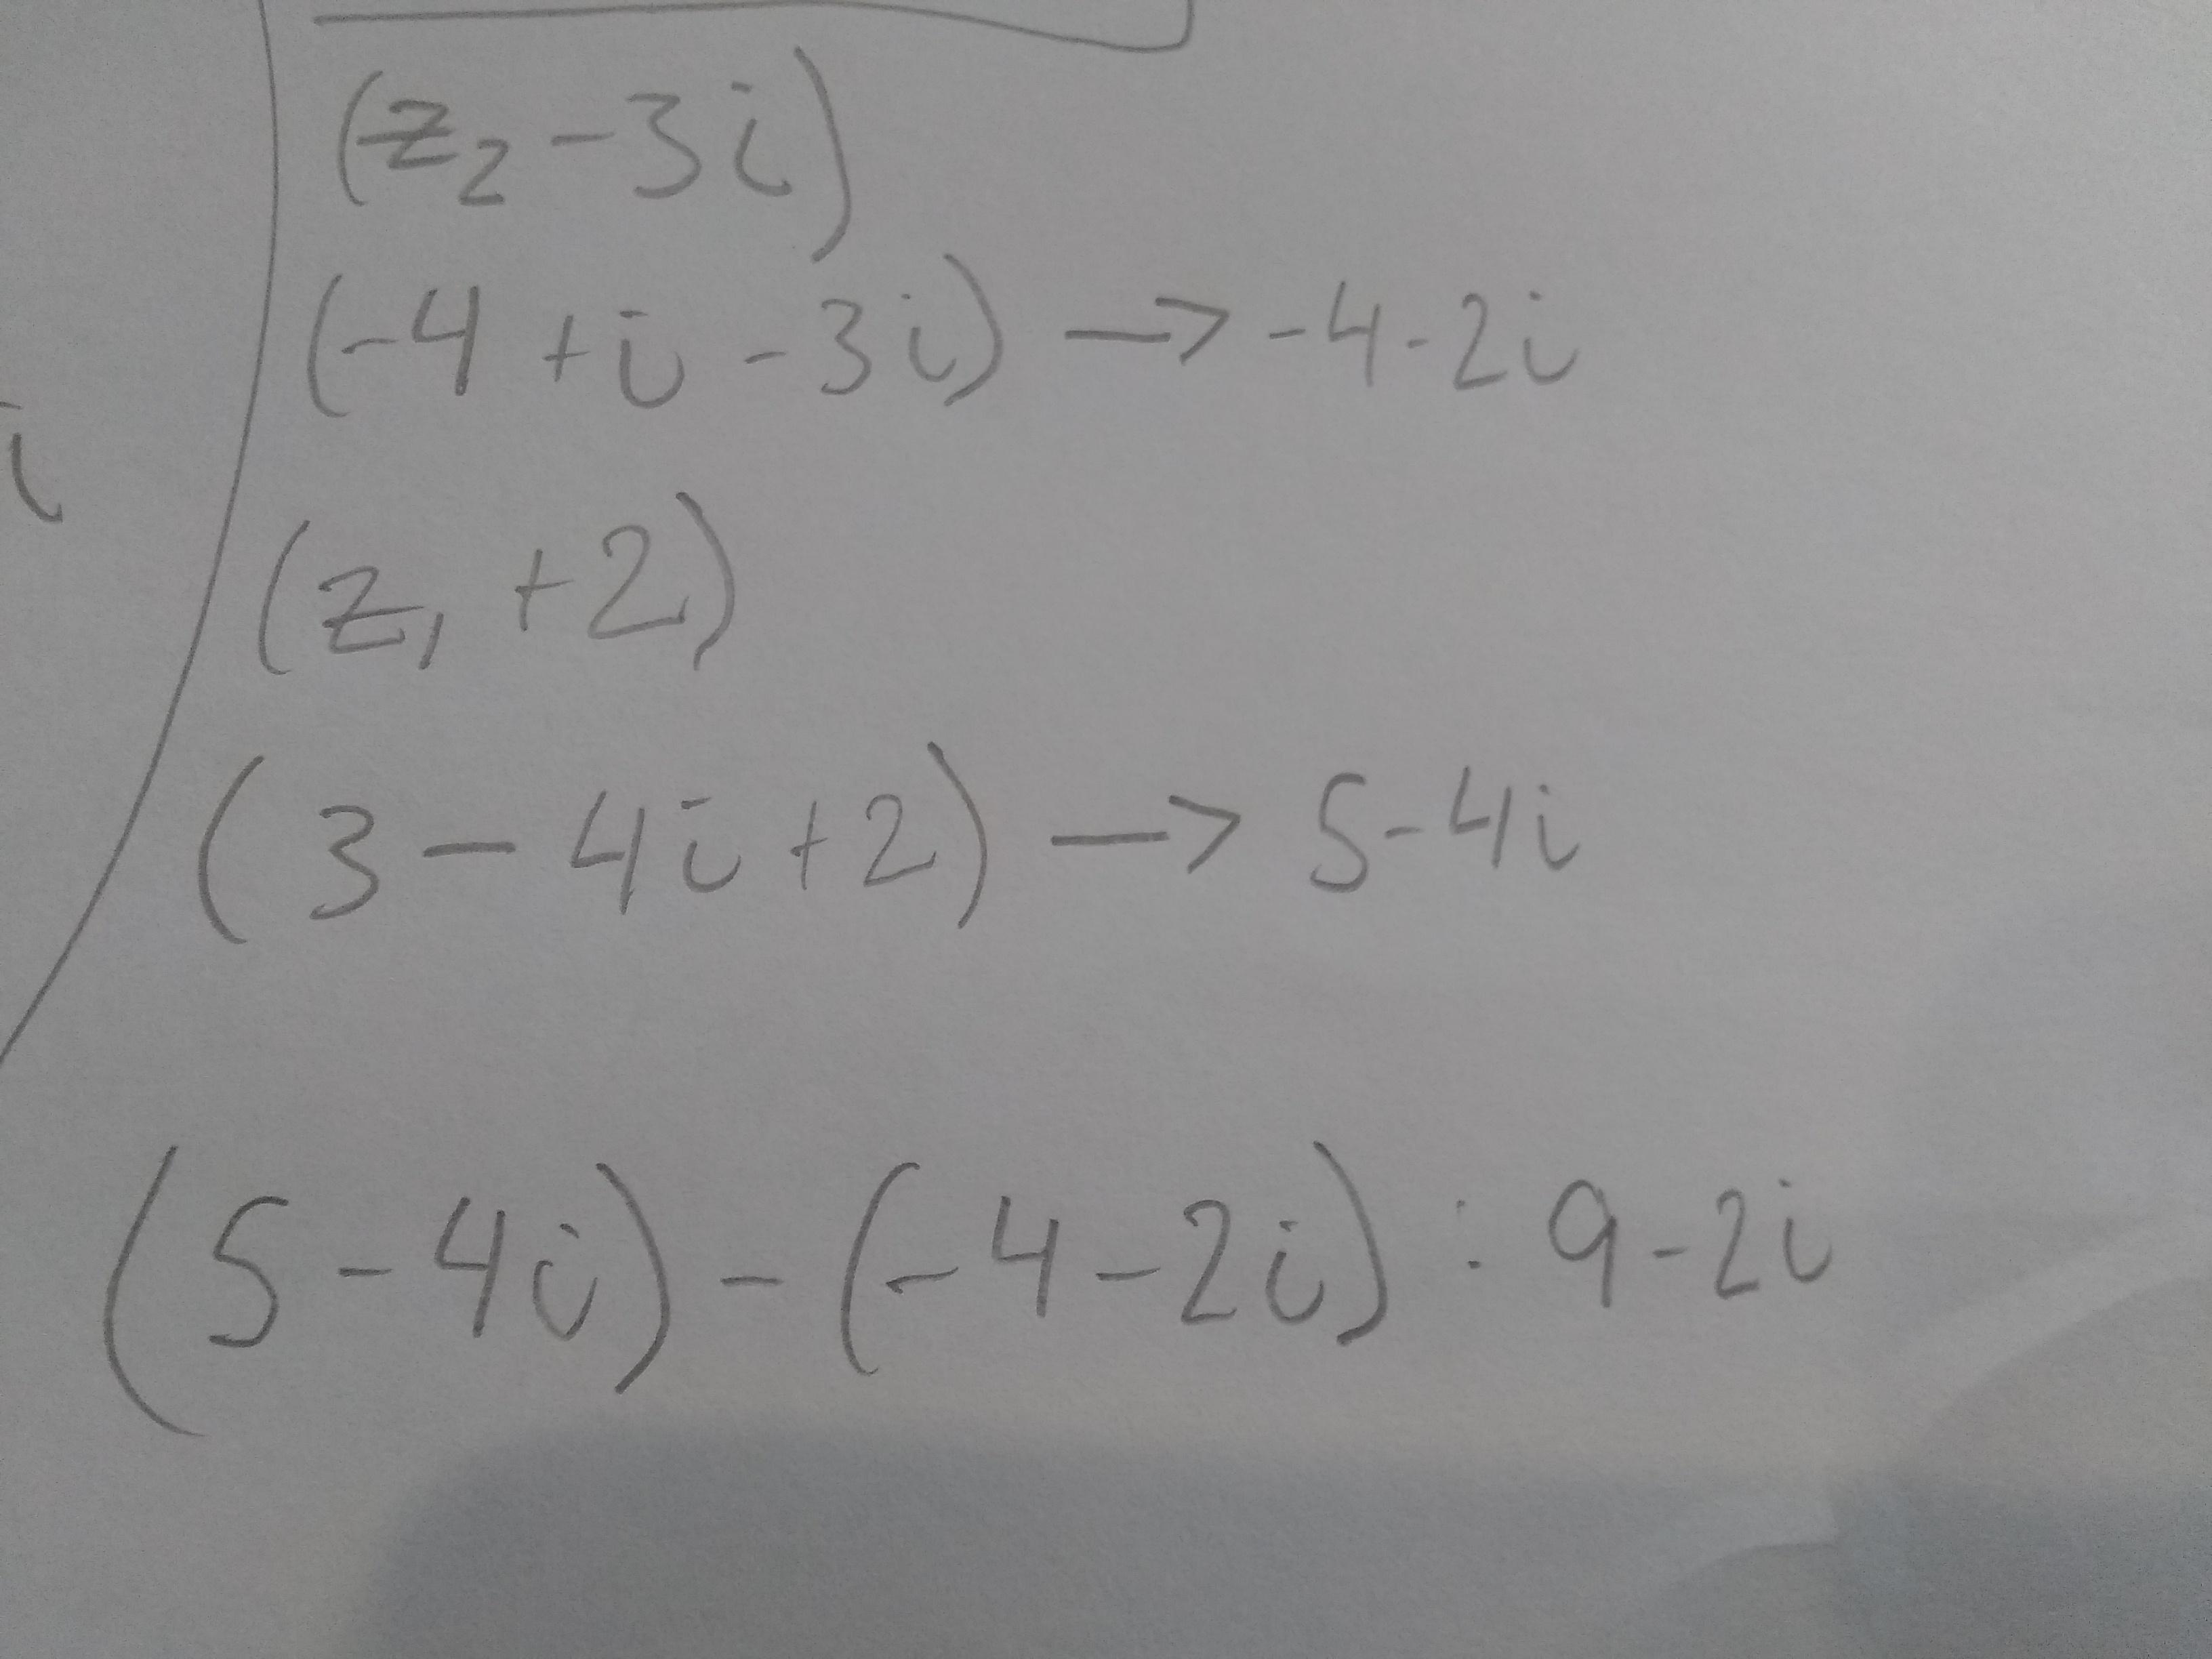 (z₂ - 3i)
(-4 + i - 3i) → -4 - 2i
i
(z₁ + 2)
(3 - 4i + 2) → 5 - 4i
(5 - 4i) - (-4 - 2i) : 9 - 2i